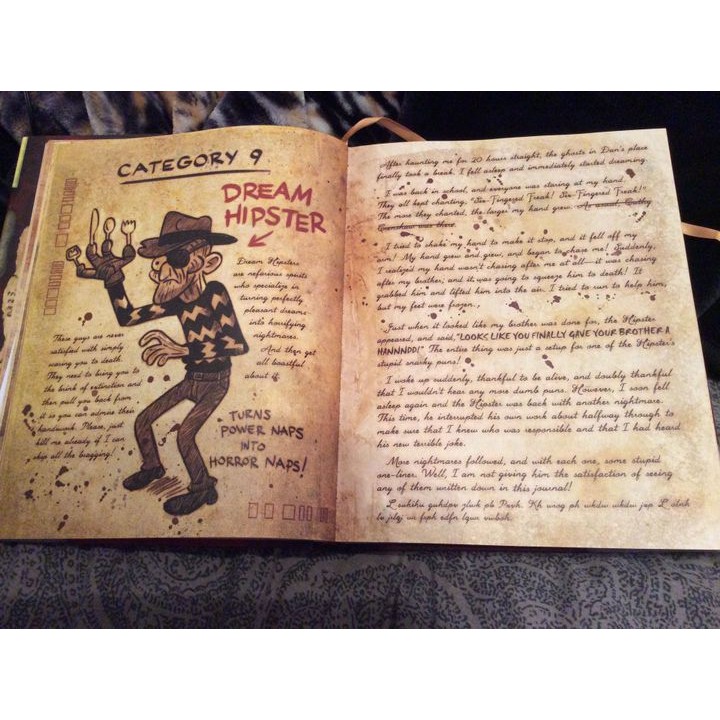 CATEGORY 9
DREAM
HIPSTER
Dream Hipsters
are nefarious spirits
who specialize in
turning perfectly
pleasant dreams
into horrifying
nightmares.
And they get
all boastful
about it.
These guys are never
satisfied with simply
scaring you to death.
They need to bring you to
the brink of extinction and
then pull you back from
it so you can admire their
handiwork. Please, just
kill me already if I can
skip all the bragging!
TURNS
POWER NAPS
INTO
HORROR NAPS!
After haunting me for 20 hours straight, the ghosts in Dan's place
finally took a break. I fell asleep and immediately started dreaming.
I was back in school, and everyone was staring at my hand.
They all kept chanting, "Six-Fingered Freak! Six-Fingered Freak!"
The more they chanted, the larger my hand grew. As usual, Cathy
Crenshaw was there.
I tried to shake my hand to make it stop, and it fell off my
arm! My hand grew and grew, and began to chase me! Suddenly,
I realized my hand wasn't chasing after me at all—it was chasing
after my brother, and it was going to squeeze him to death! It
grabbed him and lifted him into the air. I tried to run to help him,
but my feet were frozen.
Just when it looked like my brother was done for, the Hipster
appeared, and said, "LOOKS LIKE YOU FINALLY GAVE YOUR BROTHER A
HANNNDD!" The entire thing was just a setup for one of the Hipster's
stupid snarky puns!
I woke up suddenly, thankful to be alive, and doubly thankful
that I wouldn't hear any more dumb puns. However, I soon fell
asleep again and the Hipster was back with another nightmare.
This time, he interrupted his own work about halfway through to
make sure that I knew who was responsible and that I had heard
his new terrible joke.
More nightmares followed, and with each one, some stupid
one-liner. Well, I am not giving him the satisfaction of seeing
any of them written down in this journal!
L suhihu guhdpv zlwk pb Pxvh. Kh wrog ph wkdw wkdw L